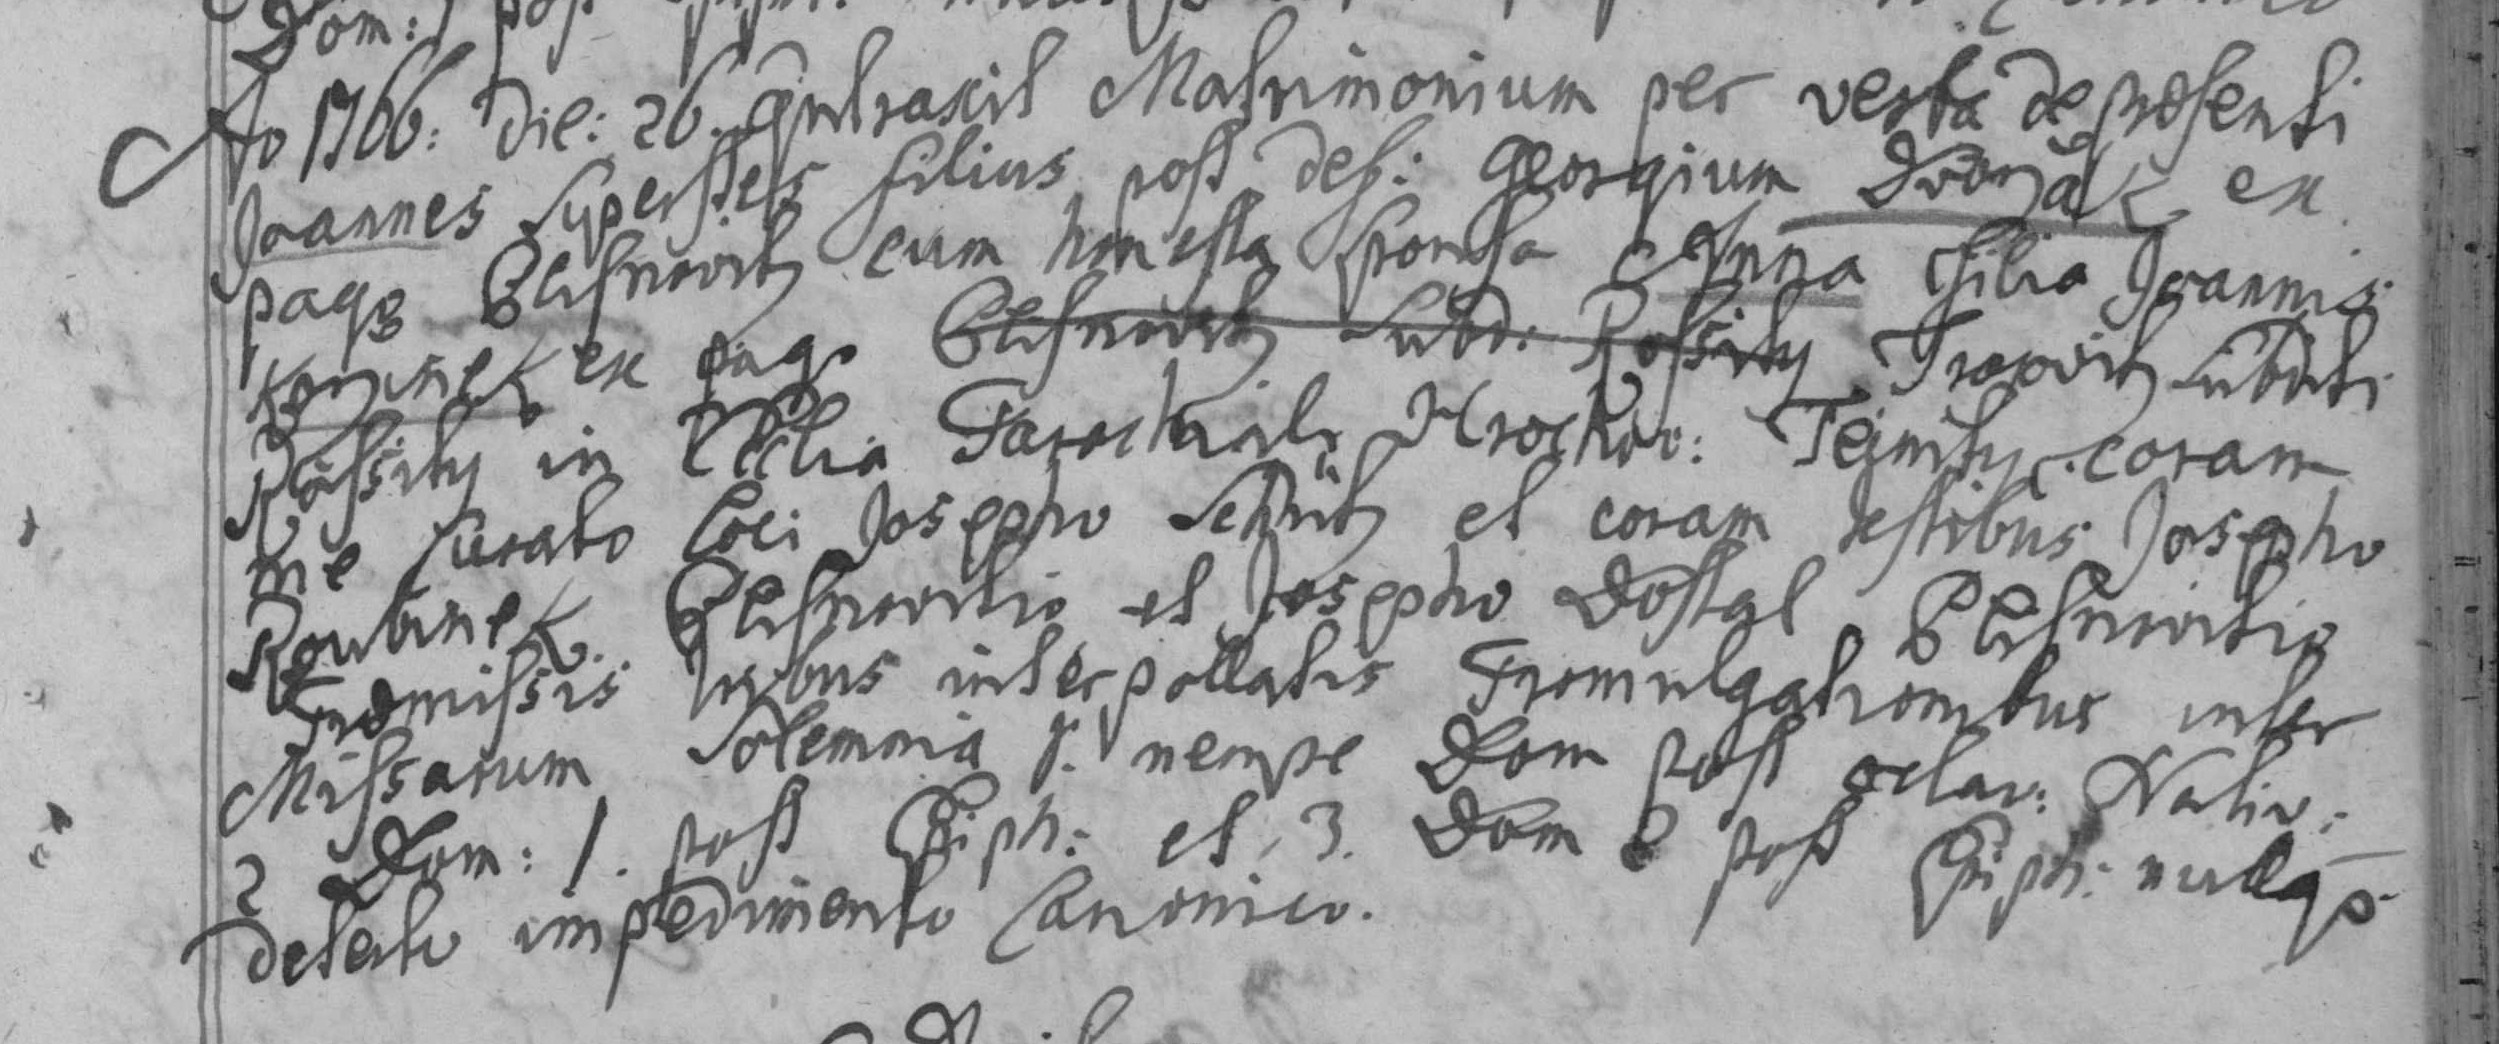 Dom: 1 post
Ao 1766: Die: 26. Contraxit Matrimonium per verba de præsenti
Joannes Superstes filius post def: Georgium Dworzak ex
pago Elhrowitz cum honesta sponsa Anna filia Joannis
ex pago subd: Rossity subditi
Rossity in Eccla Parochiali Hrochow: Tejnity coram
me Curato loci Josepho et coram testibus Josepho
Roubinek et Josepho Dostal
Præmissis tribus interpollatis Promulgationibus inter
Missarum Solemnia 1. nempe Dom post octav: Nativ:
2 Dom: 1. post Epiph: et 3. Dom 2 post Epiph: nullo
detecto impedimento Canonico.